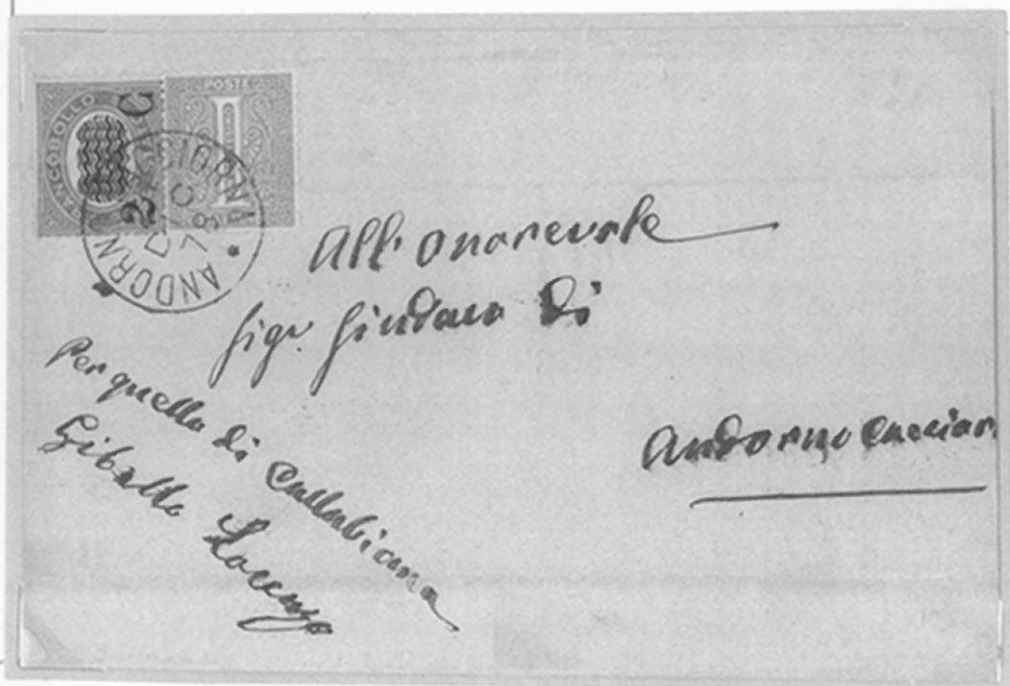 FRANCOBOLLO
2 C
POSTE
1
ANDORNO
DIC
78
All'onorevole
Sigr. Sindaco di
Andorno Cacciorn
Per quello di Callabiana
Gibello Lorenzo